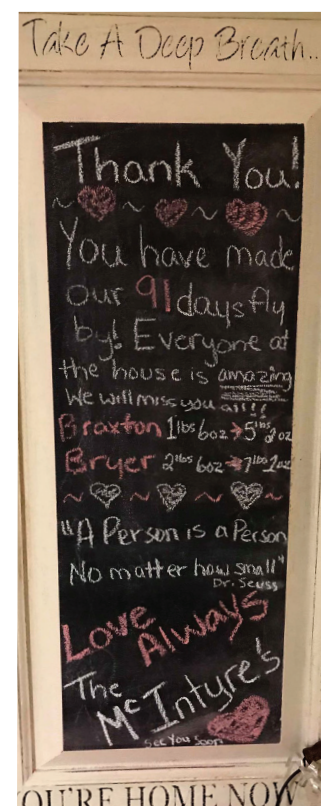 Take A Deep Breath..
Thank You!
~ ~ ~ ~
You have made
our 91 days fly
by! Everyone at
the house is amazing
We will miss you all!!!
Braxton 1lbs 6oz → 5lbs 2oz
Bryer 2lbs 6oz → 7lbs 2oz
~ ~ ~ ~
"A Person is a Person
No matter how small"
Dr. Seuss
Love
Always
The
McIntyre's
See You Soon
YOU'RE HOME NOW